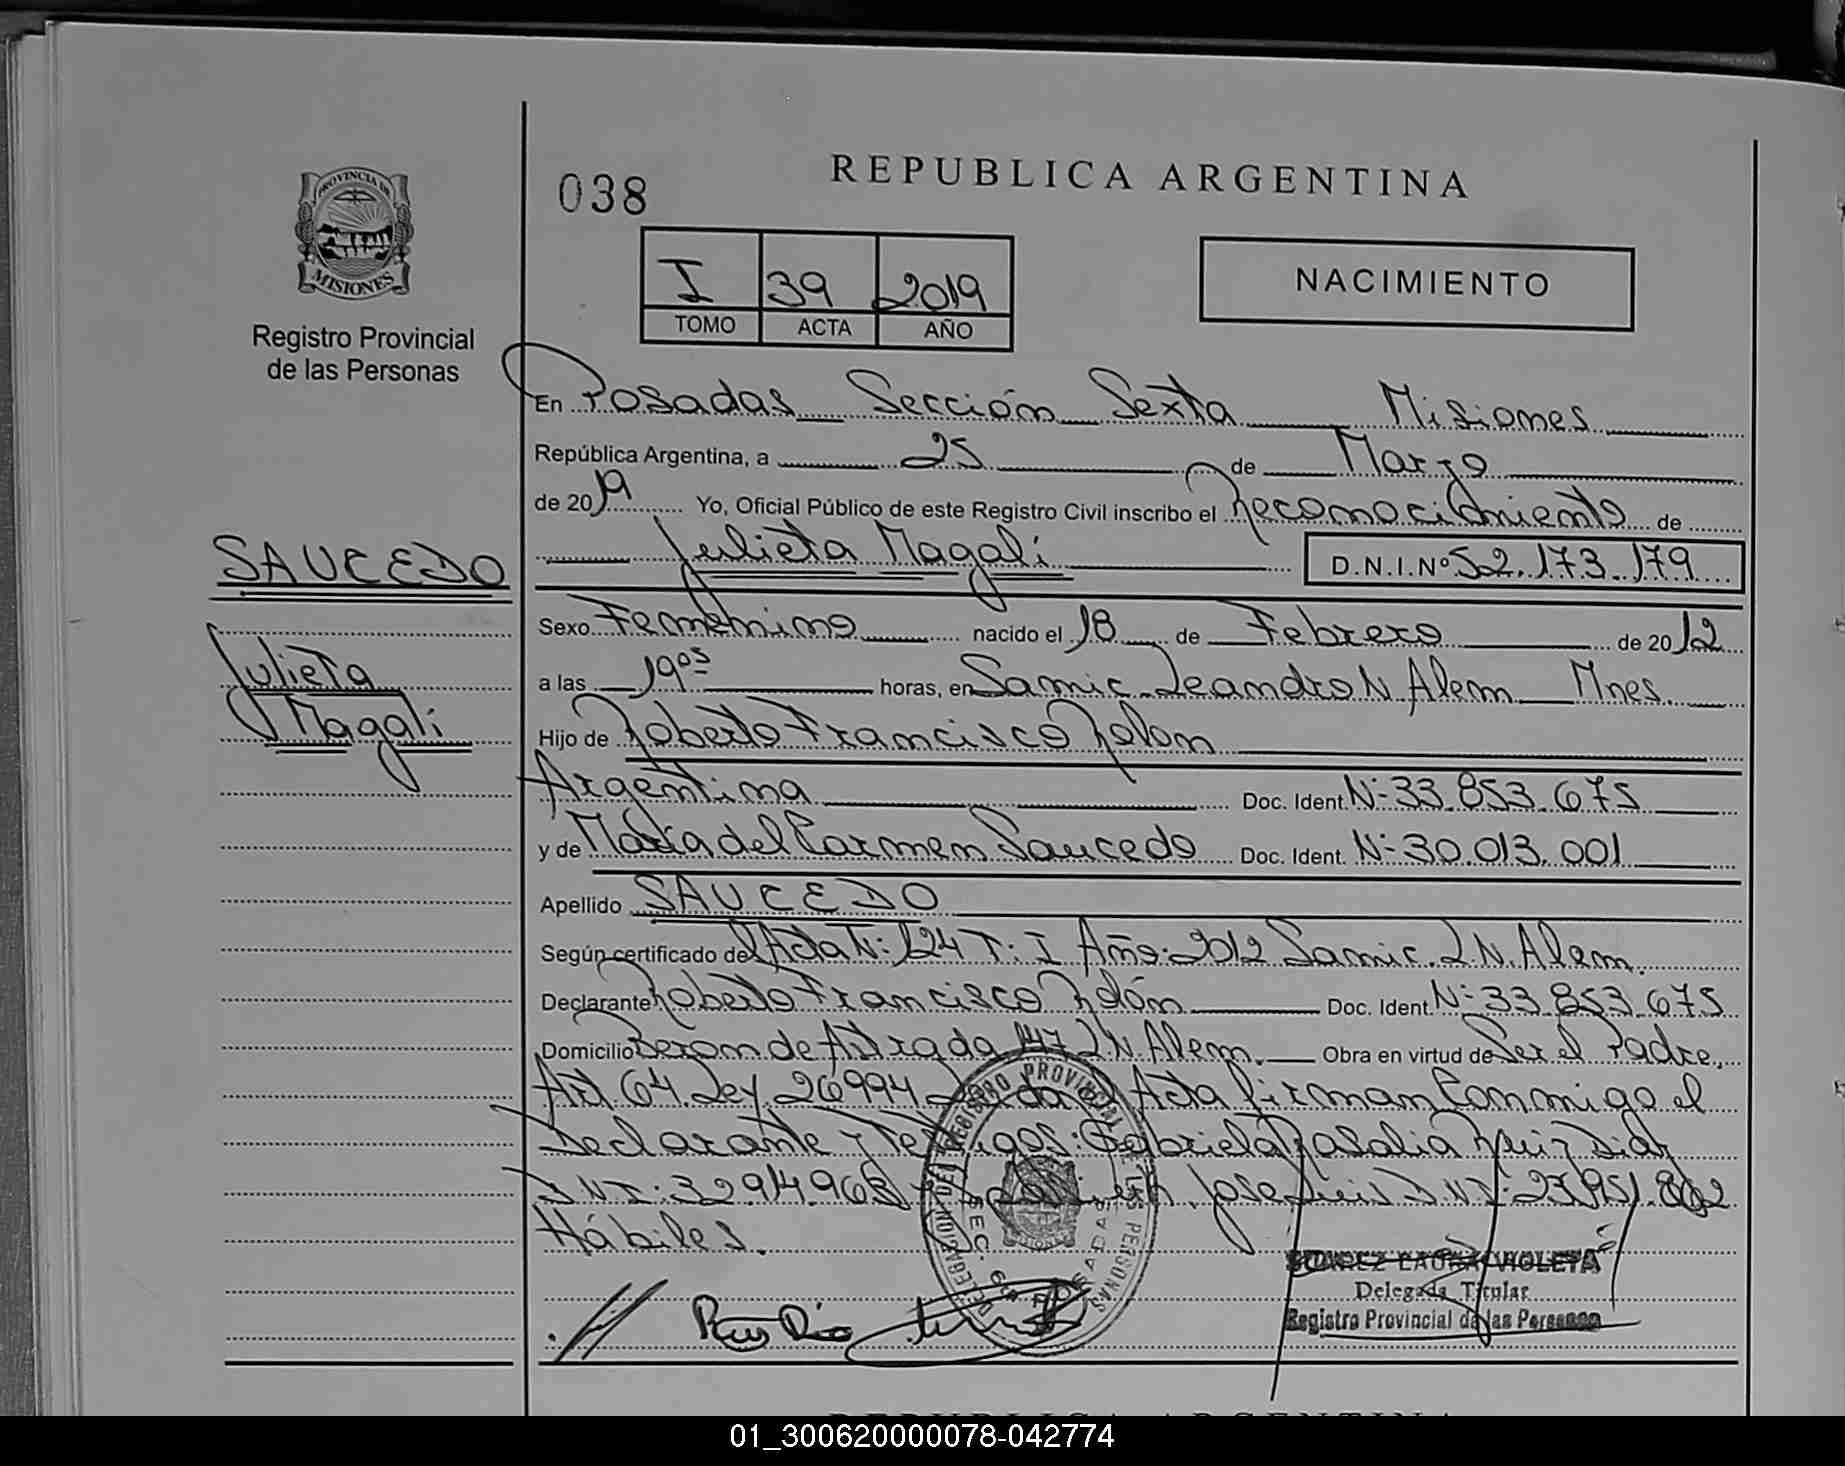 REPUBLICA ARGENTINA
038
PROVINCIA DE
MISIONES
Registro Provincial
de las Personas
I 39 2019
TOMO ACTA AÑO
NACIMIENTO
En Posadas Sección Sexta Misiones
República Argentina, a 25 de Marzo
de 2019 Yo, Oficial Público de este Registro Civil inscribo el Reconocimiento de
SAUCEDO
Julieta Magalí D.N.I.Nº 52.173.179
Sexo Femenino nacido el 18 de Febrero de 2012
Julieta
Magalí
a las 19 05 horas, en Samic Leandro N Alem Mnes.
Hijo de Roberto Francisco Rolon
Argentina Doc. Ident. Nº 33.853.675
y de María del Carmen Saucedo Doc. Ident. Nº 30.013.001
Apellido SAUCEDO
Según certificado del Acta Nº: 124 T: I Año: 2012 Samic. L.N. Alem.
Declarante Roberto Francisco Rolón Doc. Ident. Nº 33.853.675
Domicilio Beron de Astrada 147 L N. Alem. Obra en virtud de Ser el Padre.,
Art. 64. Ley. 26994 el Acta firman Conmigo el
Declarante y Testigos: Gabriela Rosalia Ruiz Diaz
D N I: 32.914.963 Jose Luis D N I: 27.951.802
Hábiles.
DELEGACION DEL REGISTRO PROVINCIAL DE LAS PERSONAS
SEC. 6ta POSADAS
MISIONES
SUAREZ LAURA VIOLETA
Delegada Titular
Registro Provincial de las Personas
REPUBLICA ARGENTINA
01_300620000078-042774